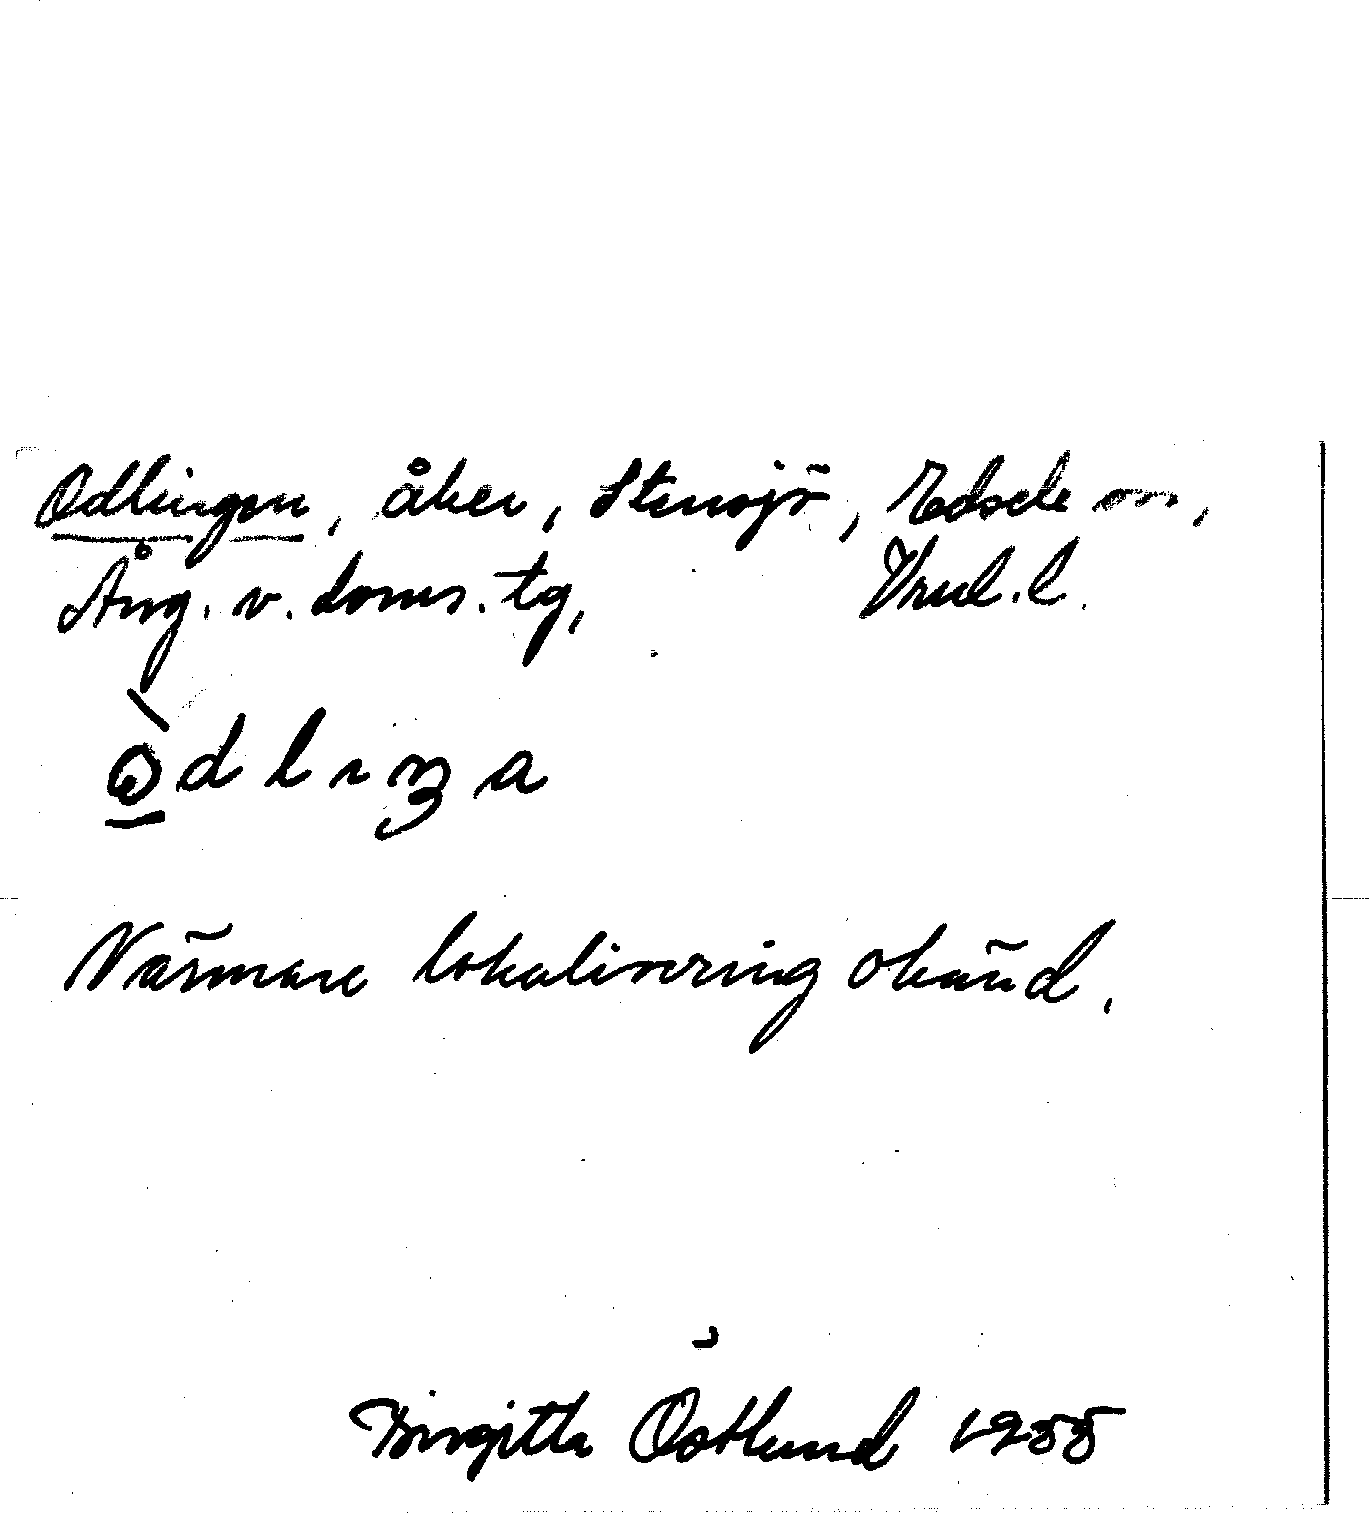 Odlingen, åker, Stensjö, Edsele sn,
Ång. v. doms. tg,
Närmare lokalisering okänd.
Birgitta Östlund 1955